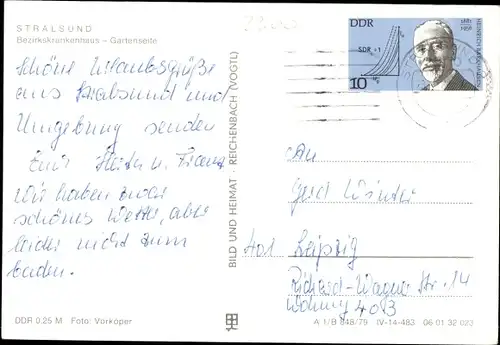 STRALSUND
Bezirkskrankenhaus – Gartenseite
Schöne Urlaubsgrüße
aus Stralsund und
Umgebung senden
Heiter u. Franz
Wir haben zwar
schönes Wetter, aber
leider nicht zum
baden.
DDR 0,25 M Foto: Vorköper
BILD UND HEIMAT · REICHENBACH (VOGTL)
DDR
10
1881
1956
An
Gerd Winter
701 Leipzig
Richard-Wagner Str. 14
Wohnung 4083
A 1/B 848/79 IV-14-483 06 01 32 023